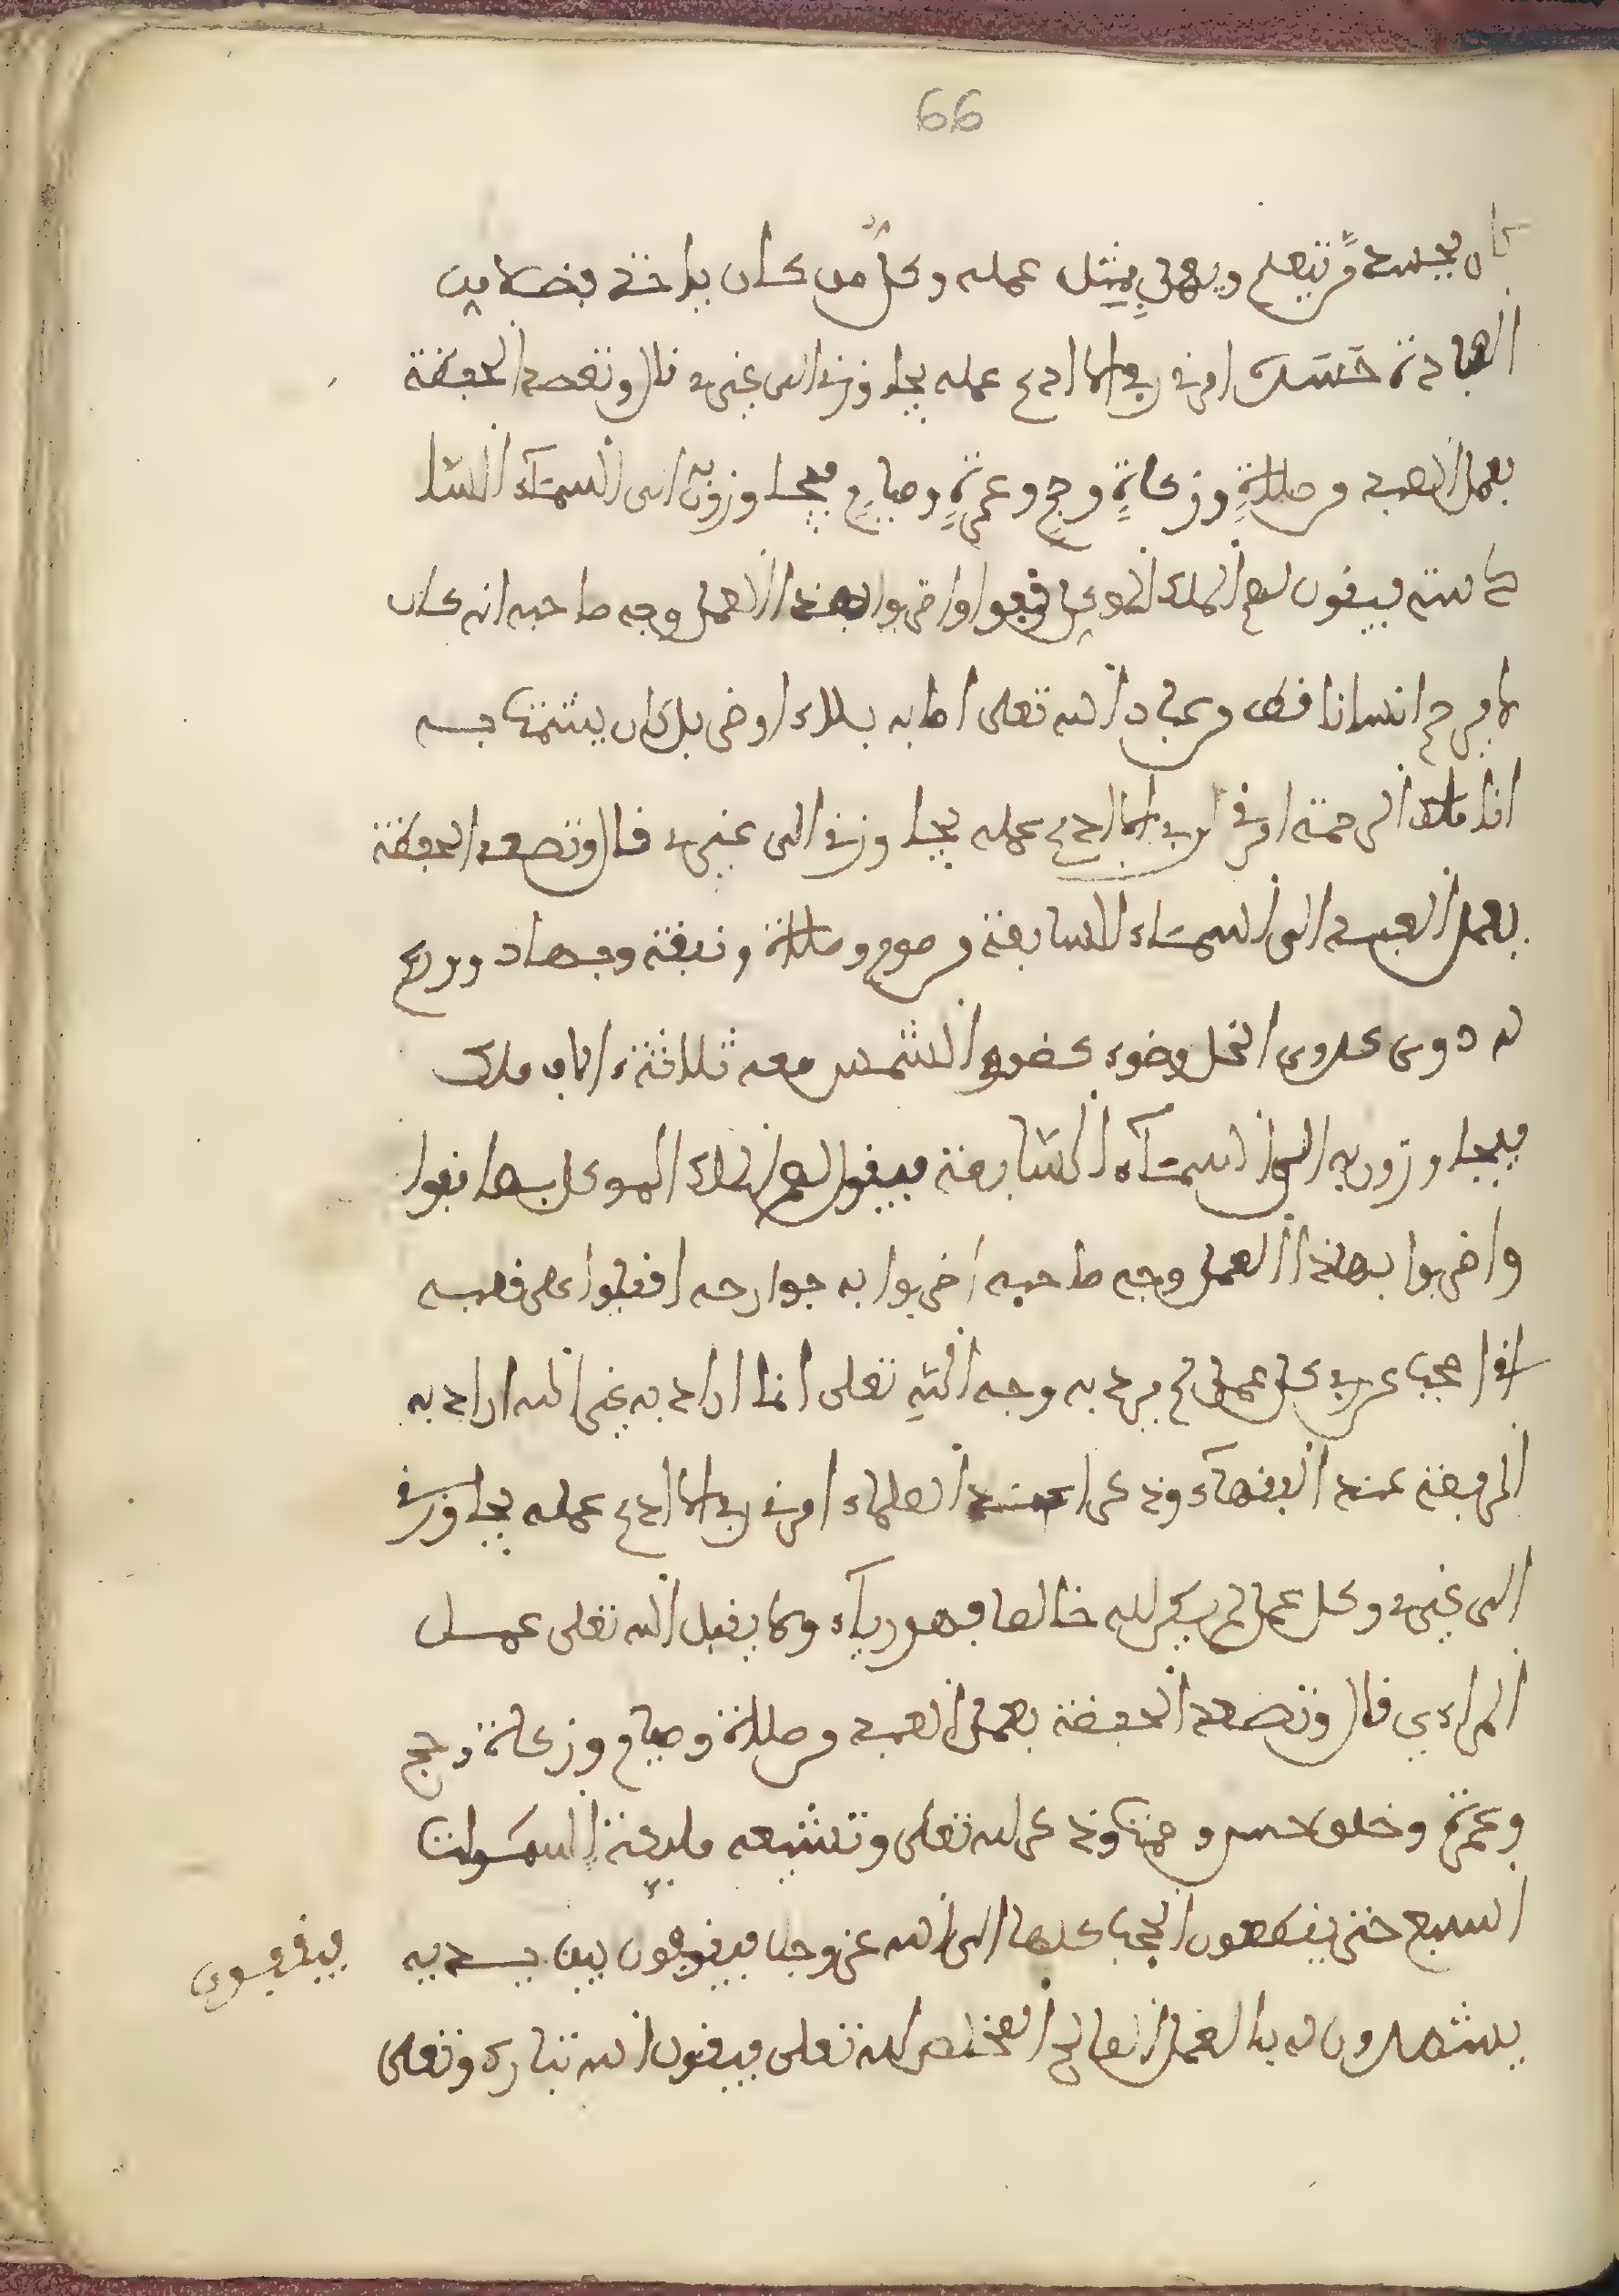 66
كان يحسد من يتعلم ويعمل بمثل عمله وكل من كان ياخذ فضلا من
العبادة حسدك امرني ربي ان لا ادع عمله يجاوزني الى غيري قال وتصعد الحفظة
بعمل العبد من صلاة وزكاة وحج وعمرة وصيام فيجاوزون به الى السماء السا
دسة فيقول لهم الملك الموكل قفوا واضربوا بهذا العمل وجه صاحبه انه كان
لا يرحم انسانا قط من عباد الله تعلى اصابه بلاء او ضر بل كان يشمت به
انا ملك الرحمة امرني ربي ان لا ادع عمله يجاوزني الى غيري قال وتصعد الحفظة
بعمل العبد الى السماء السابعة من صوم وصلاة ونفقة وجهاد وورع
له دوي كدوي النحل وضوء كضوء الشمس معه ثلاثة ءالاف ملك
فيجاوزون به الى السماء السابعة فيقول لهم الملك الموكل بها قفوا
واضربوا بهذا العمل وجه صاحبه اضربوا به جوارحه اقفلوا على قلبه
انا احجب عن ربي كل عمل لم يرد به وجه الله تعلى انما اراد به غير الله اراد به
الرفعة عند الفقهاء وذكرا عند العلماء امرني ربي ان لا ادع عمله يجاوزني
الى غيري وكل عمل لم يكن لله خالصا فهو رياء ولا يقبل الله تعلى عمل
المراءي قال وتصعد الحفظة بعمل العبد من صلاة وصيام وزكاة وحج
وعمرة وخلق حسن وصمت وذكر الله تعلى وتشيعه ملايكة السموات
السبع حتى يقطعون الحجب كلها الى الله عز وجل فيقوفون بين يديه
فيقفون
يشهدون له بالعمل الصالح المخلص لله تعلى فيقول الله تبارك وتعلى